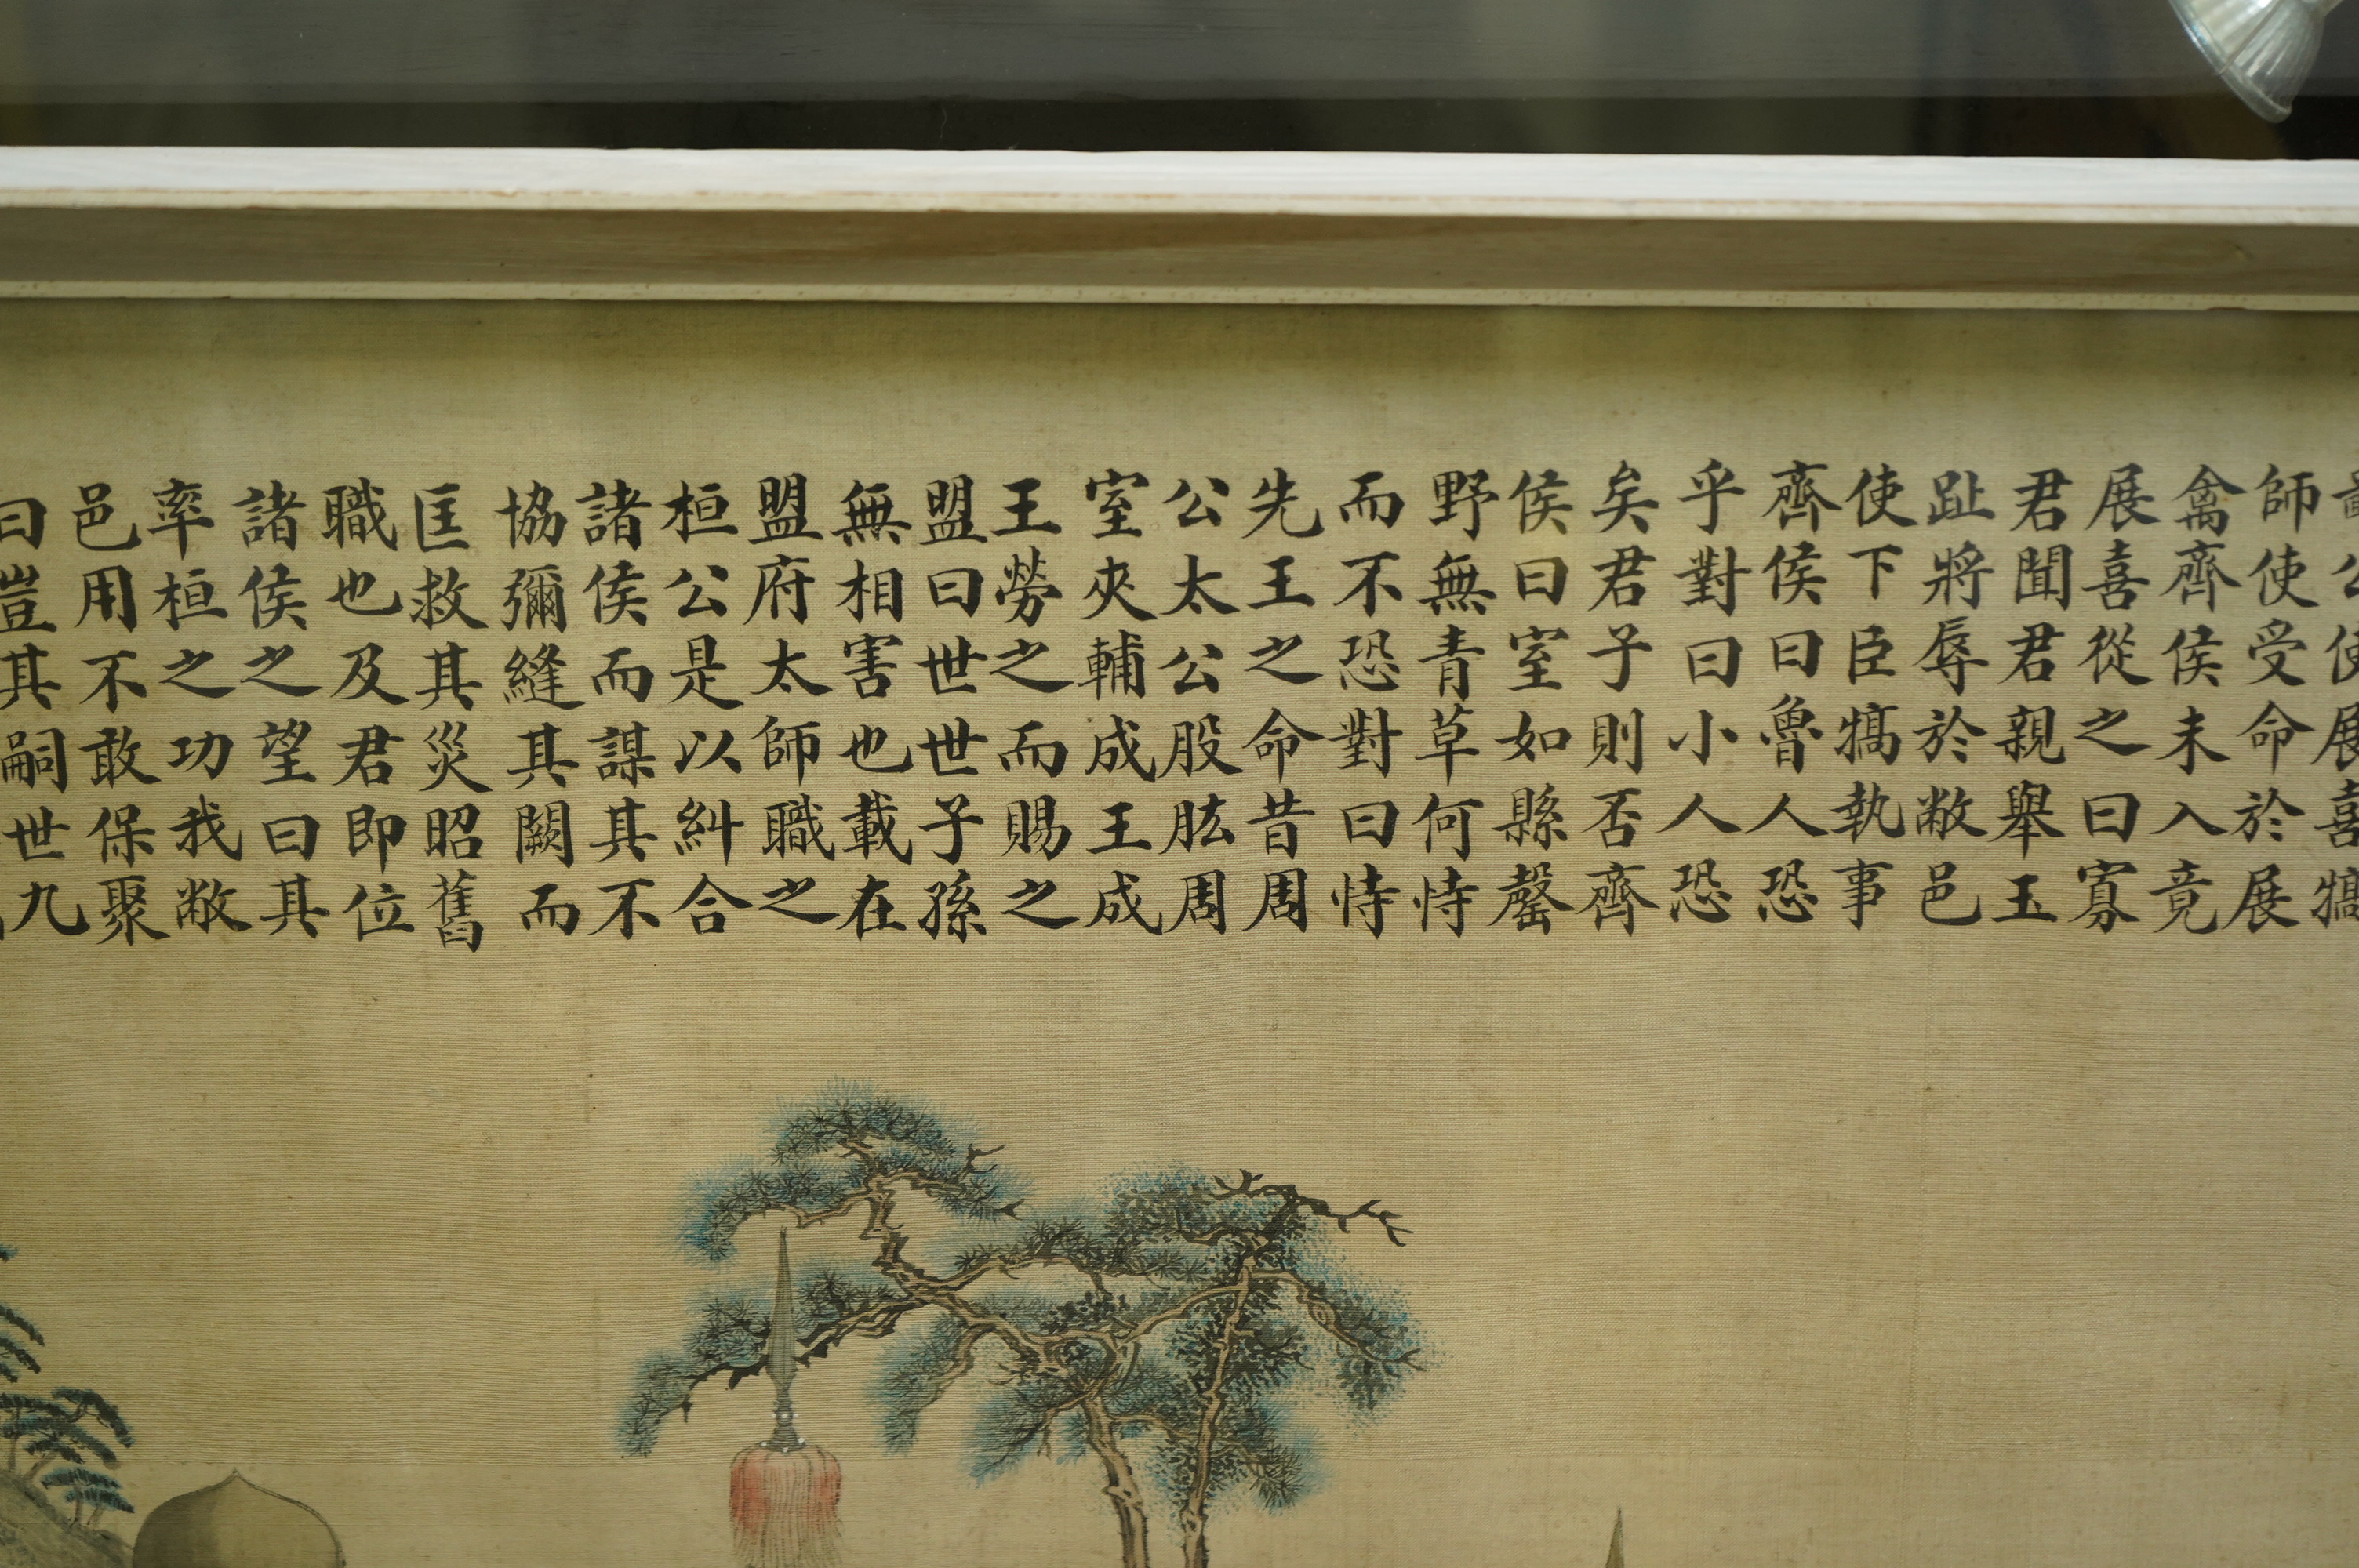 公使展喜犒
師使受命於展
禽齊侯未入竟
展喜從之曰寡
君聞君親舉玉
趾將辱於敝邑
使下臣犒執事
齊侯曰魯人恐
乎對曰小人恐
矣君子則否齊
侯曰室如縣罄
野無青草何恃
而不恐對曰恃
先王之命昔周
公太公股肱周
室夾輔成王成
王勞之而賜之
盟曰世世子孫
無相害也載在
盟府太師職之
桓公是以糾合
諸侯而謀其不
協彌縫其闕而
匡救其災昭舊
職也及君即位
諸侯之望曰其
率桓之功我敝
邑用不敢保聚
曰豈其嗣世九